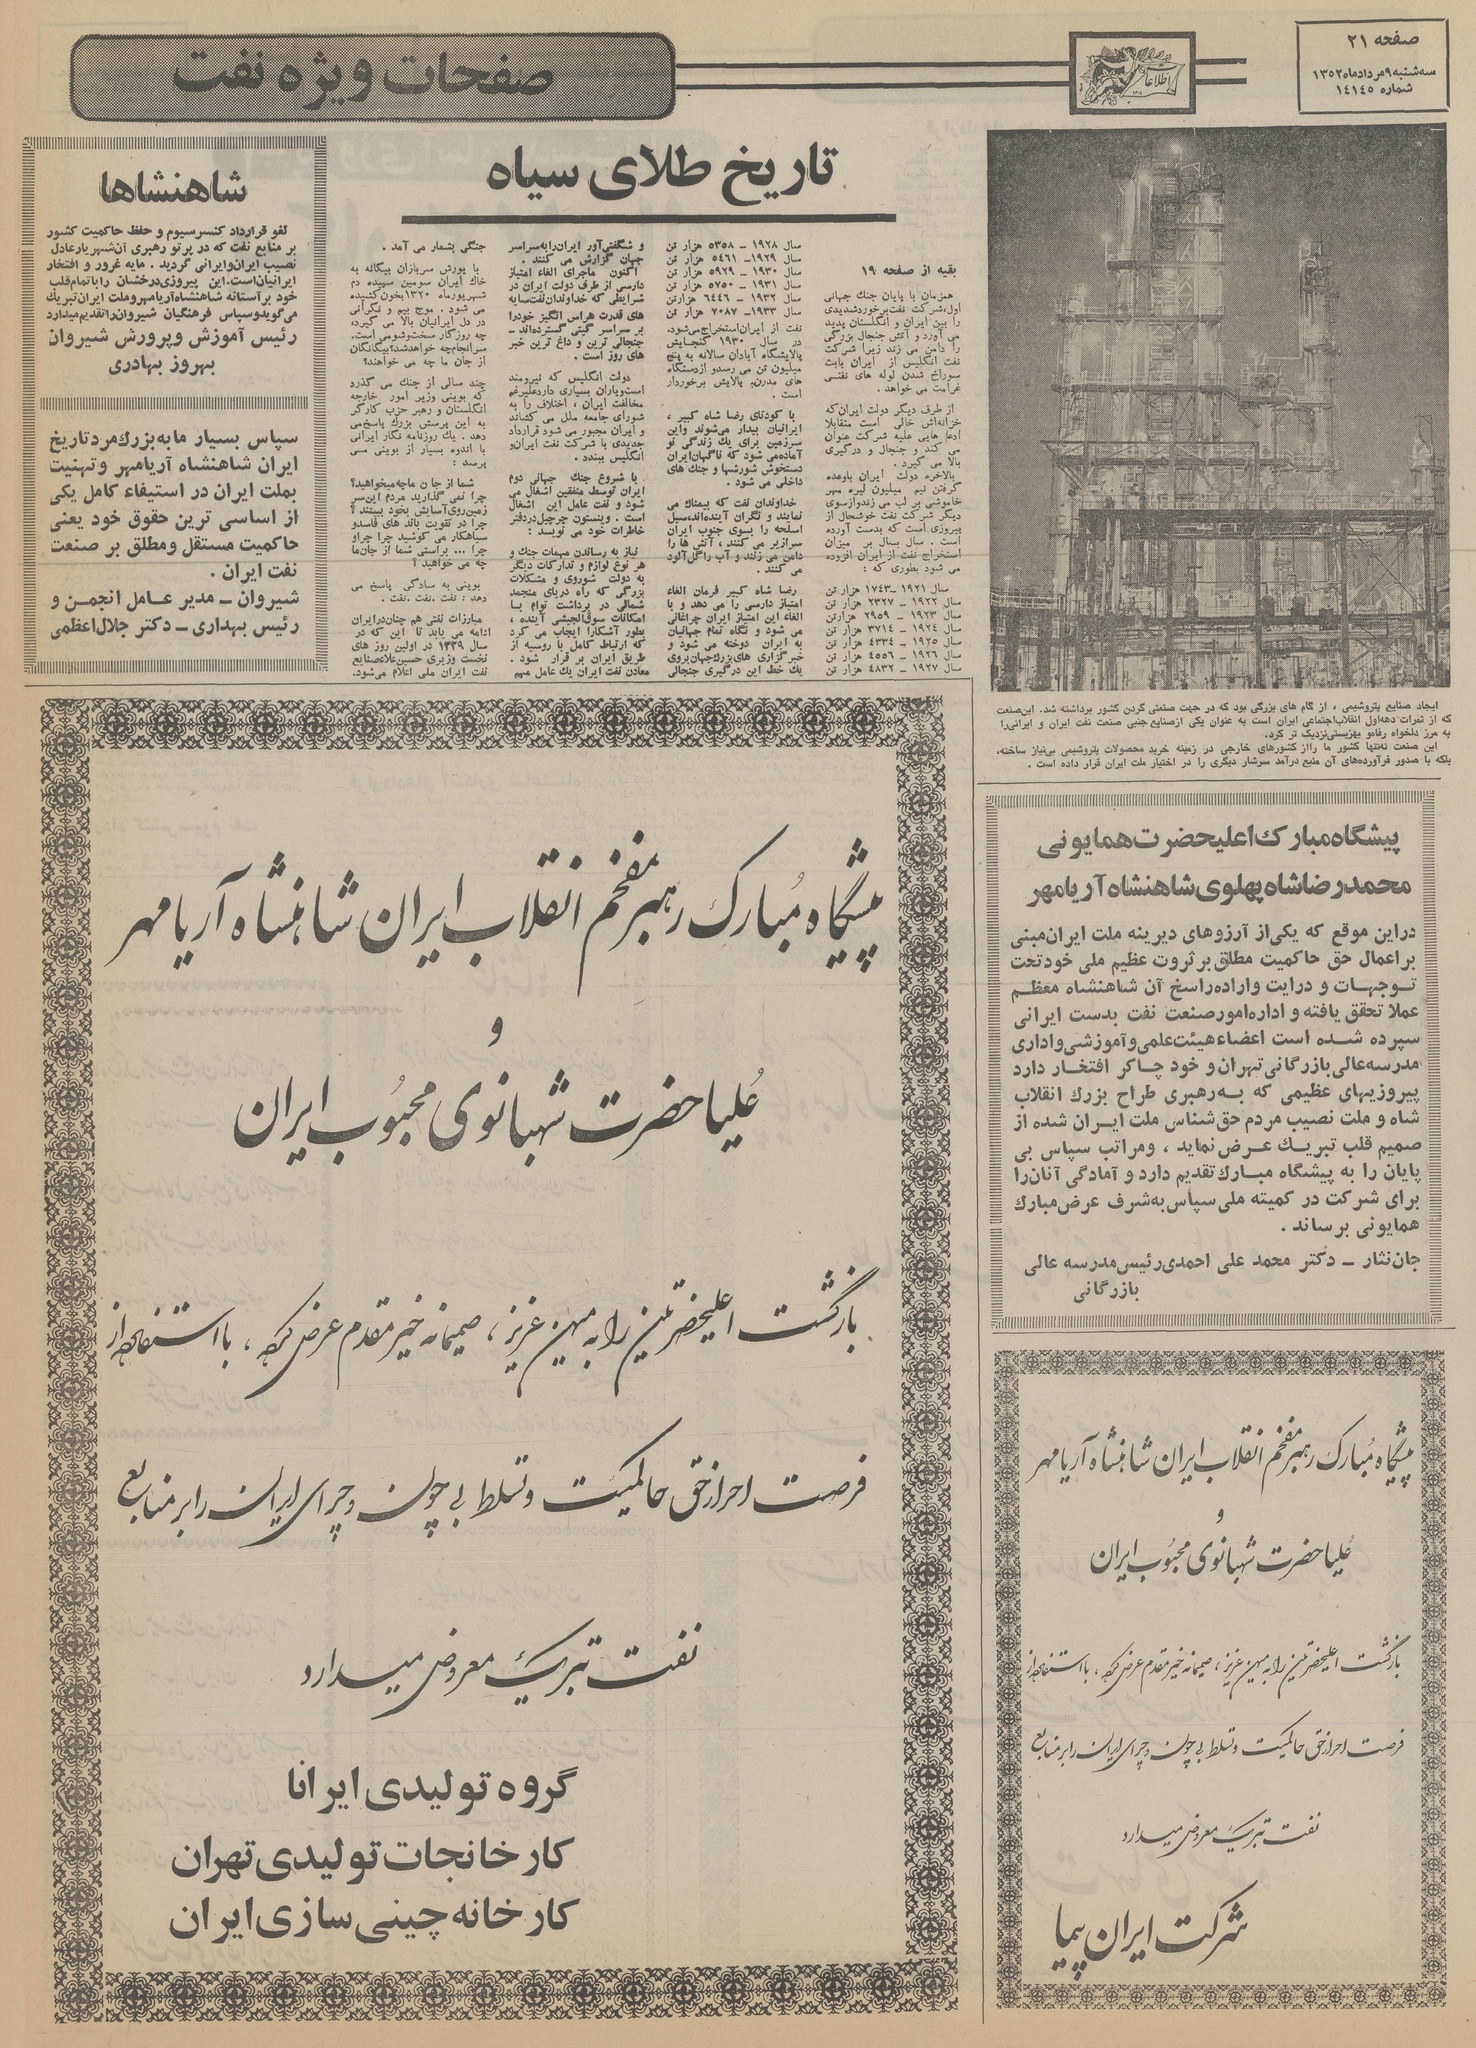 صفحه ۲۱
سه‌شنبه ۹ مرداد ماه ۱۳۵۲
شماره ۱۴۱۴۵
اطلاعات
صفحات ویژه نفت
تاریخ طلای سیاه
بقیه از صفحه ۱۹
همزمان با پایان جنك جهانی
اول،شرکت نفت برخورد شدیدی
را بین ایران و انگلستان پدید
می آورد و آتش جنجال بزرگی
را دامن می زند زیرا شرکت
نفت انگلیس از ایران بابت
سوراخ شدن لوله های نفتی
غرامت می خواهد .
از طرف دیگر دولت ایران‌که
خزانه‌اش خالی است متقابلا
ادعا هایی علیه شرکت عنوان
می کند و جنجال و درگیری
بالا می گیرد .
بالاخره دولت ایران باوعده
گرفتن نیم میلیون لیره مهر
خاموشی بر لب می زندوازسوی
دیگر شرکت نفت خوشحال از
پیروزی است که بدست آورده
است . سال بسال بر میزان
استخراج نفت از ایران افزوده
می شود بطوری که :
سال ۱۹۲۱ ـ ۱۷۴۳ هزار تن
سال ۱۹۲۲ ـ ۲۳۲۷ هزار تن
سال ۱۹۲۳ ـ ۲۹۵۹ هزارتن
سال ۱۹۲۴ ـ ۳۷۱۴ هزار تن
سال ۱۹۲۵ ـ ۴۳۳۴ هزار تن
سال ۱۹۲۶ ـ ۴۵۵۶ هزار تن
سال ۱۹۲۷ ـ ۴۸۳۲ هزار تن
سال ۱۹۲۸ ـ ۵۳۵۸ هزار تن
سال ۱۹۲۹ـ ۵۴۶۱ هزار تن
سال ۱۹۳۰ـ ۵۹۲۹ هزار تن
سال ۱۹۳۱ ـ ۵۷۵۰ هزار تن
سال ۱۹۳۲ ـ ۶۴۴۶ هزارتن
سال ۱۹۳۳ـ ۷۰۸۷ هزار تن
نفت از ایران‌استخراج‌می‌شود.
در سال ۱۹۳۰ گنجایش
پالایشگاه آبادان سالانه به پنج
میلیون تن می رسدو ازدستگاه
های مدرن پالایش برخوردار
است .
با کودتای رضا شاه کبیر ،
ایرانیان بیدار می‌شوند واین
سرزمین برای یك زندگی نو
آماده‌می شود که ناگهان‌ایران
دستخوش شورشها و جنك های
داخلی می شود .
خداوندان نفت که بیمناك می
نمایند و نگران آینده‌اند،سیل
اسلحه را بسوی جنوب ایران
سرازیر می کنند ، آتش ها را
دامن می زنند و آب راگل‌آلود
می کنند .
رضا شاه کبیر فرمان الغاء
امتیاز دارسی را می دهد و با
الغاء این امتیاز ایران چراغانی
می شود و نگاه تمام جهانیان
به ایران دوخته می شود و
خبرگزاری های‌بزرك‌جهان‌بروی
یك خط این درگیری جنجالی
و شگفتی‌آور ایران‌رابه‌سراسر
جهان گزارش می کنند .
اکنون ماجرای الغاء امتیاز
دارسی از طرف دولت ایران در
شرایطی که خداوندان‌نفت‌سایه
های قدرت هراس انگیز خودرا
بر سراسر گیتی گسترده‌اند ـ
جنجالی ترین و داغ ترین خبر
های روز است .
دولت انگلیس که نیرومند
است‌ویاران بسیاری داردعلیرغم
مخالفت ایران ، اختلاف را به
شورای جامعه ملل می کشاند
و ایران مجبور می شود قرارداد
جدیدی با شرکت نفت ایران‌و
انگلیس ببندد .
با شروع جنك جهانی دوم
ایران توسط متفقین اشغال می
شود و نفت عامل این اشغال
است . وینستون چرچیل‌دردفتر
خاطرات خود می نویسد :
نیاز به رساندن مهمات جنك و
هر نوع لوازم و تدارکات دیگر
به دولت شوروی و مشکلات
بزرگی که راه دریای منجمد
شمالی در برداشت توام با
امکانات سوق‌الجیشی آینده ،
بطور آشکارا ایجاب می کرد
که ارتباط کامل با روسیه از
طریق ایران بر قرار شود .
معادن نفت ایران یك عامل مهم
جنگی بشمار می آمد .
با یورش سربازان بیگانه به
خاك ایران سومین سپیده دم
شهریورماه ۱۳۲۰ بخون‌کشیده
می شود . موج بیم و نگرانی
در دل ایرانیان بالا می گیرد،
چه روزگار سخت‌وشومی است.
سرانجام‌چه خواهدشد؟بیگانگان
از جان ما چه می خواهند؟
چند سالی از جنك می گذرد
که بوینی وزیر امور خارجه
انگلستان و رهبر حزب کارگر
به این پرسش بزرك پاسخ‌می
دهد . یك روزنامه نگار ایرانی
با اندوه بسیار از بوینی می
پرسد :
شما از جان ماچه‌میخواهید؟
چرا نمی گذارید مردم این‌سر
زمین‌روی‌آسایش بخود ببینند ؟
چرا در تقویت باند های فاسدو
سیاهکار می کوشید چرا چراو
چرا ... براستی شما از جان‌ما
چه می خواهید ؟
بوینی به سادگی پاسخ می
دهد : نفت .نفت .نفت .
مبارزات نفتی هم چنان‌درایران
ادامه می یابد تا این که در
سال ۱۳۲۹ در اولین روز های
نخست وزیری حسین‌علاءصنایع
نفت ایران ملی اعلام می‌شود.
ایجاد صنایع پتروشیمی ، از گام های بزرگی بود که در جهت صنعتی کردن کشور برداشته شد. این‌صنعت
که از ثمرات دهه‌اول انقلاب‌اجتماعی ایران است به عنوان یکی ازصنایع جنبی صنعت نفت ایران و ایرانی‌را
به مرز دلخواه رفاه‌و بهزیستی‌نزدیک تر کرد.
این صنعت نه‌تنها کشور ما رااز کشورهای خارجی در زمینه خرید محصولات پتروشیمی بی‌نیاز ساخته،
بلکه با صدور فرآورده‌های آن منبع درآمد سرشار دیگری را در اختیار ملت ایران قرار داده است .
شاهنشاها
لغو قرارداد کنسرسیوم و حفظ حاکمیت کشور
بر منابع نفت که در پرتو رهبری آن‌شهریارعادل
نصیب ایران‌وایرانی گردید . مایه غرور و افتخار
ایرانیان‌است.این پیروزی‌درخشان رابا تمام‌قلب
خود برآستانه شاهنشاه‌آریامهروملت ایران‌تبریك
می‌گویدوسپاس فرهنگیان شیروان‌راتقدیم‌میدارد
رئیس آموزش وپرورش شیروان
بهروز بهادری
سپاس بسیار ما به بزرك‌مرد تاریخ
ایران شاهنشاه آریامهر و تهنیت
بملت ایران در استیفاء کامل یکی
از اساسی ترین حقوق خود یعنی
حاکمیت مستقل ومطلق بر صنعت
نفت ایران .
شیروان ـ مدیر عامل انجمن و
رئیس بهداری ـ دکتر جلال‌اعظمی
پیشگاه‌مبارك‌اعلیحضرت‌همایونی
محمدرضاشاه‌پهلوی‌شاهنشاه‌آریامهر
دراین موقع که یکی‌از آرزوهای دیرینه ملت ایران‌مبنی
براعمال حق حاکمیت مطلق بر ثروت عظیم ملی خودتحت
توجهات و درایت واراده‌راسخ آن شاهنشاه معظم
عملا تحقق یافته و اداره‌امورصنعت نفت بدست ایرانی
سپرده شده است اعضاءهیئت‌علمی‌وآموزشی‌واداری
مدرسه‌عالی‌بازرگانی‌تهران‌و خود چاکر افتخار دارد
پیروزیهای عظیمی که به‌رهبری طراح بزرك انقلاب
شاه و ملت نصیب مردم حق‌شناس ملت ایران شده از
صمیم قلب تبریك عرض نماید ، ومراتب سپاس بی
پایان را به پیشگاه مبارك‌تقدیم دارد و آمادگی آنان‌را
برای شرکت در کمیته ملی‌سپاس به‌شرف عرض‌مبارك
همایونی برساند .
جان‌نثار ـ دکتر محمد علی احمدی‌رئیس‌مدرسه عالی
بازرگانی
پیشگاه مبارک رهبر مفخم انقلاب ایران شاهنشاه آریامهر
و
علیاحضرت شهبانوی محبوب ایران
بازگشت اعلیحضرتین را به میهن عزیز ، صمیمانه خیر مقدم عرض کرده ، با استفاده از
فرصت احراز حق حاکمیت و تسلط بی چون و چرای ایران را بر منابع
نفت تبریک معروض میدارد
گروه تولیدی ایرانا
کارخانجات تولیدی تهران
کارخانه چینی سازی ایران
پیشگاه مبارک رهبر مفخم انقلاب ایران شاهنشاه آریامهر
و
علیاحضرت شهبانوی محبوب ایران
بازگشت اعلیحضرتین را به میهن عزیز ، صمیمانه خیر مقدم عرض کرده ، با استفاده از
فرصت احراز حق حاکمیت و تسلط بی چون و چرای ایران را بر منابع
نفت تبریک معروض میدارد
شرکت ایران پیما